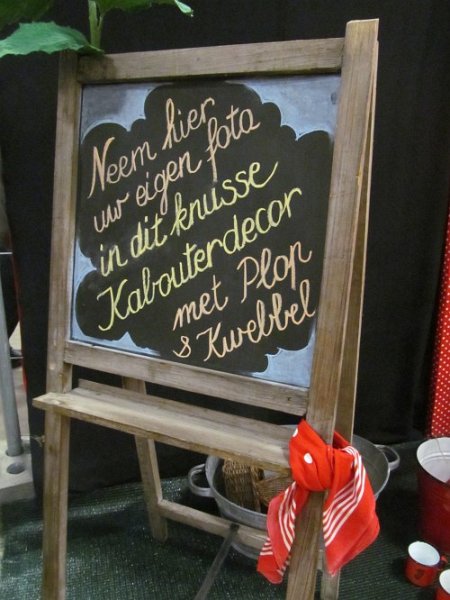 Neem hier
uw eigen foto
in dit knusse
Kabouterdecor
met Plop
& Kwebbel